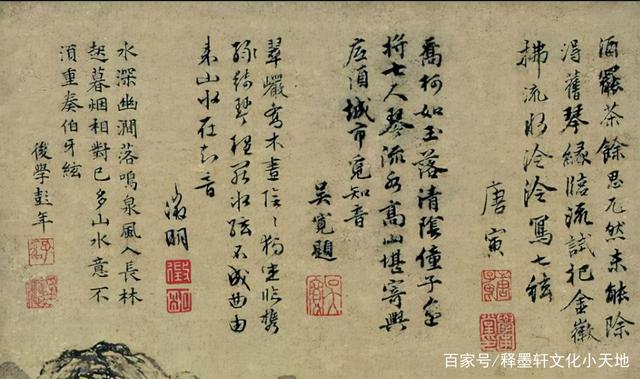 酒罷茶餘思兀然未能除
得舊琴緣臨流試把金徽
拂流水泠泠寫七絃
唐寅
喬柯如玉落清陰僮子
將七尺琴流水高山堪寄興
應須城市覓知音
吳寬題
翠巖喬木晝陰〻獨坐臨携
綠綺琴罷冰絃不成曲由
來山水在知音
徵明
水深幽澗落鳴泉風入長林
起暮烟相對已多山水意不
須重奏伯牙絃
後學彭年
百家号/释墨轩文化小天地